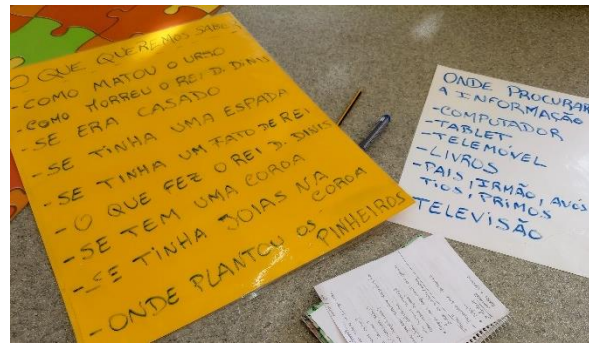 O QUE QUEREMOS SABER
- COMO MATOU O URSO
- COMO MORREU O REI D. DINIS
- SE ERA CASADO
- SE TINHA UMA ESPADA
- SE TINHA UM FATO DE REI
- O QUE FEZ O REI D. DINIS
- SE TEM UMA COROA
- SE TINHA JOIAS NA COROA
- ONDE PLANTOU OS PINHEIROS
ONDE PROCURAR
A INFORMAÇÃO
- COMPUTADOR
- TABLET
- TELEMÓVEL
- LIVROS
- PAIS, IRMÃO, AVÓS
TIOS, PRIMOS
TELEVISÃO